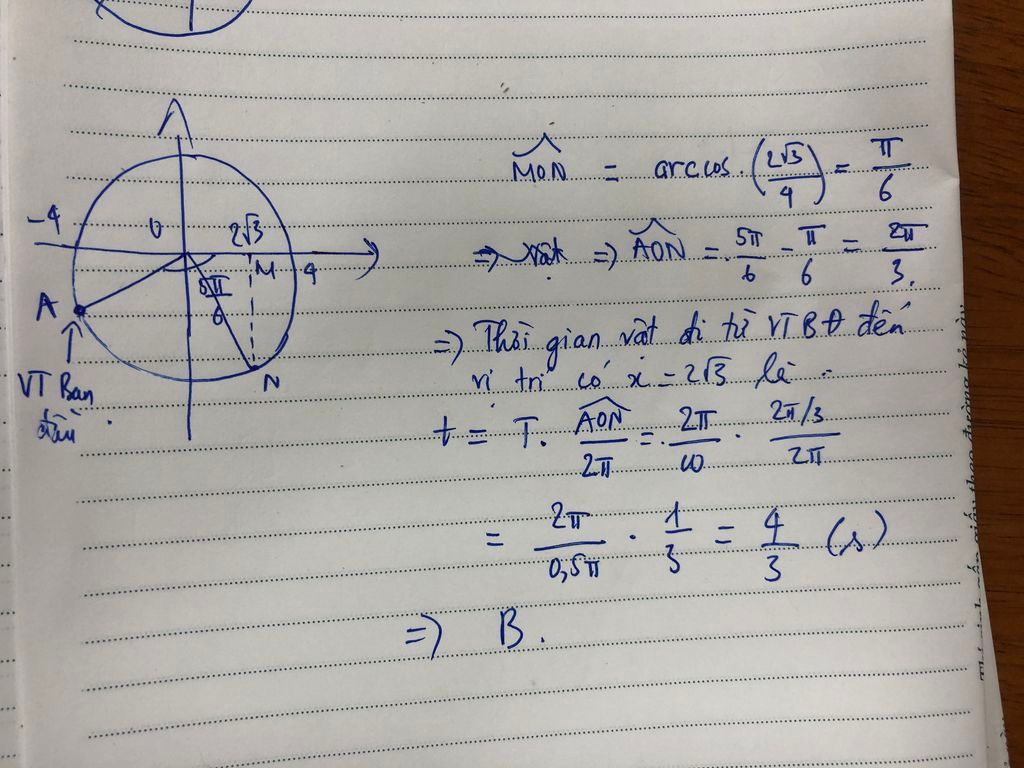 -4
0
2√3
M
4
5π/6
A
N
VT Ban
đầu
MON = arccos.(2√3/4) = π/6
=> vật => AON = 5π/6 - π/6 = 2π/3.
=> Thời gian vật đi từ VTBĐ đến
vị trí có x = 2√3 là
t = T. AON/2π = 2π/ω . 2π/3/2π
= 2π/0,5π . 1/3 = 4/3 (s)
=> B.